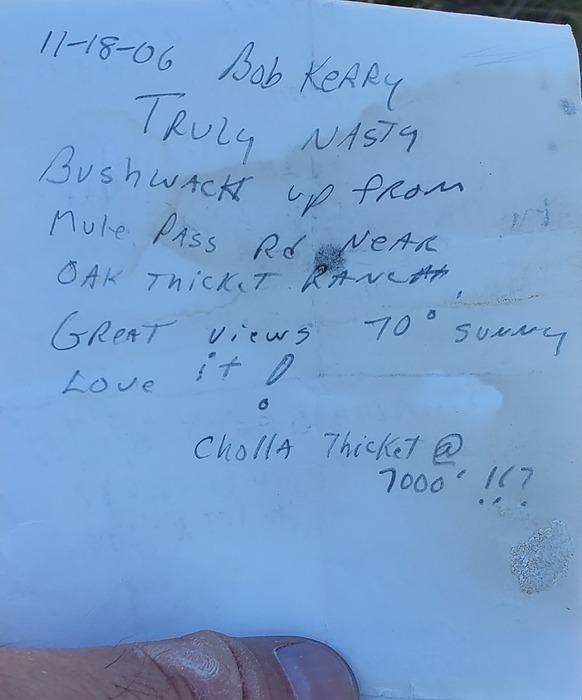 11-18-06 Bob KERRY
TRULY NASTY
BUSHWACK UP FROM
MULE PASS Rd NEAR
OAK THICKET RANCH,
GREAT VIEWS 70° SUNNY
LOVE it !
CHOLLA THICKET @
7000' !!?